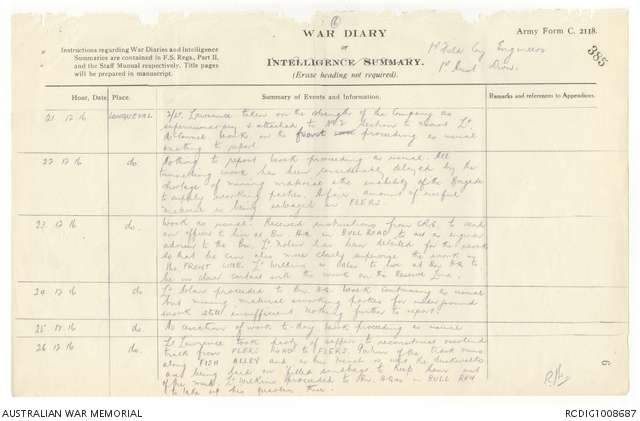 WAR DIARY
or
INTELLIGENCE SUMMARY.
(Erase heading not required).
Army Form C. 2118.
Instructions regarding War Diaries and Intelligence
Summaries are contained in F.S. Regs., Part II.
and the Staff Manual respectively. Title pages
will be prepared in manuscript.
1st Field Coy Engineers
1st Aust Divn.
385
Hour, Date Place. Summary of Events and Information. Remarks and references to Appendices.
21 12 16 LONGUEVAL 2/Lt. Lawrence taken on the strength of the Company as
supernumerary & attached to No 2 Section
work on the front proceeding as usual
nothing to report.
22 12 16 do. Nothing to report work proceeding as usual. All
tunnelling work has been considerably delayed by the
shortage of mining material & the inability of the Brigade
to supply working parties. A fair amount of useful
material is being salvaged in FLERS.
23 12 16 do. Work as usual. Received instructions from CRE. to send
an officer to live at Bn. HQ in BULL ROAD to act as engineer
adviser to the Bn. Lt Nolan has been detailed for the work
so that he can also more closely supervise the work in
the FRONT LINE. Lt Wilkins
be in closer contact with the work on the Reserve Line.
24 12 16 do. Lt Nolan proceeded to Bn. HQ. Work continuing as usual
but mining material & working parties for underground
work still insufficient. Nothing further to report.
25 12 16 do. No cessation of work to-day work proceeding as usual
26 12 16 do. Lt Lawrence took party of sappers to reconstruct overland
track from FLERS ROAD to FLERS. Portion of the track runs
along FISH ALLEY and as this trench is wet the duckwalks
are being laid on filled sandbags to keep them out
of the mud. Lt Wilkins proceeded to Bn. HQrs in BULL ROW
to take up his quarters there.
6
AUSTRALIAN WAR MEMORIAL
RCDIG1008687